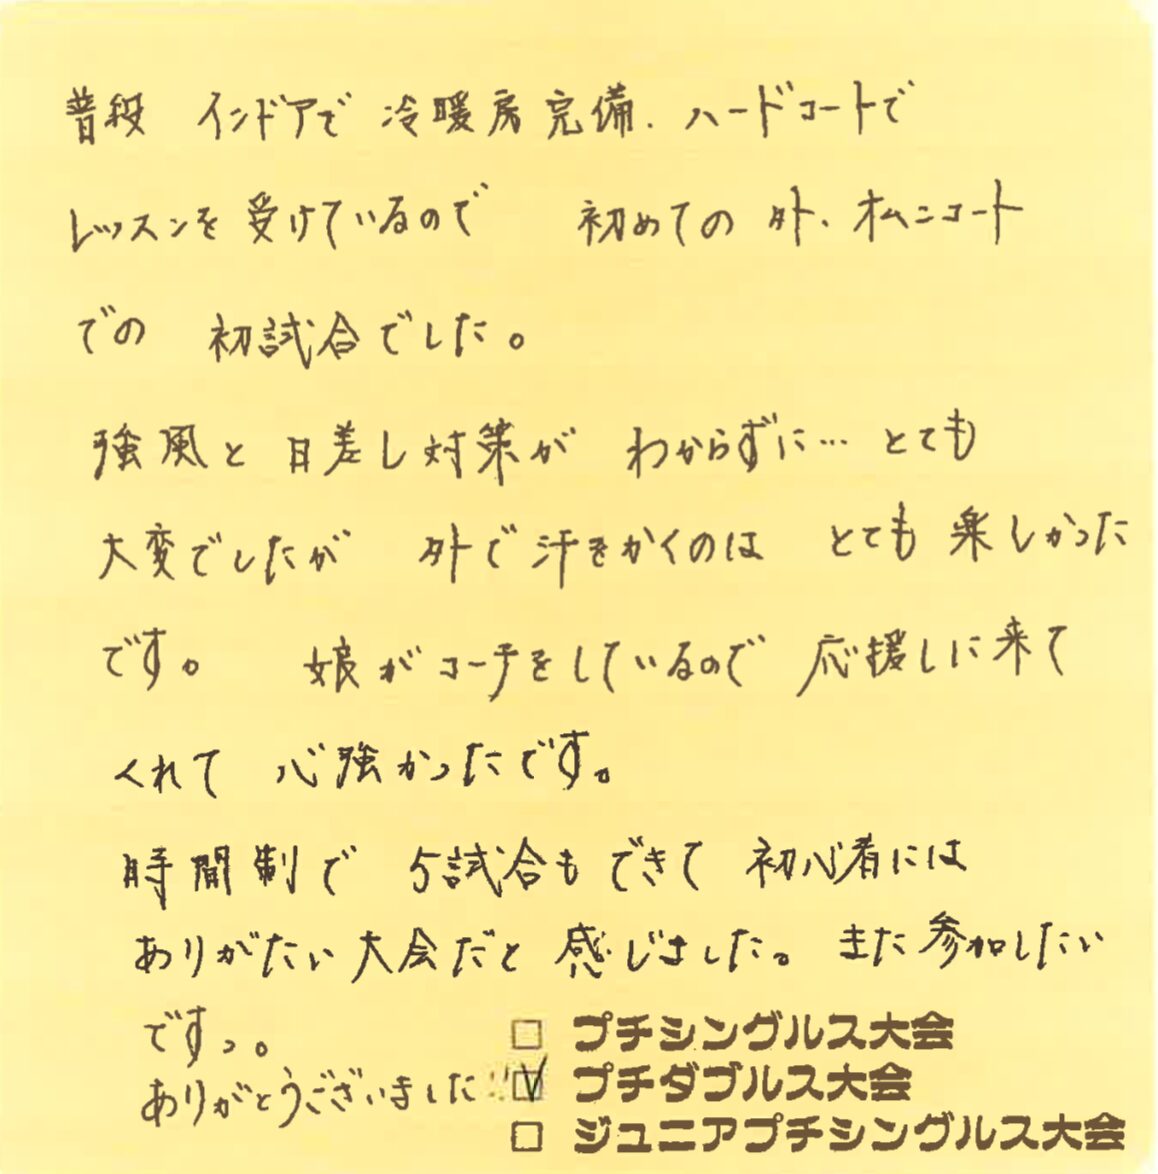 普段 インドアで 冷暖房完備、ハードコートで
レッスンを受けているので 初めての外、オムニコート
での 初試合でした。
強風と日差し対策が わからずに… とても
大変でしたが 外で汗をかくのは とても楽しかった
です。 娘がコーチをしているので 応援しに来て
くれて 心強かったです。
時間制で 5試合もできて 初心者には
ありがたい大会だと感じました。また参加したい
ですっ。
ありがとうございました!!
□ プチシングルス大会
☑ プチダブルス大会
□ ジュニアプチシングルス大会